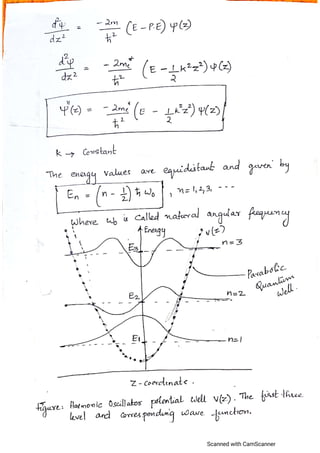 d²ψ/dz² = -2m/ħ² (E - P.E) ψ(z)
d²ψ/dz² = -2m*/ħ² (E - 1/2 k²z²) ψ(z)
ψ''(z) = -2m*/ħ² (E - 1/2 k²z²) ψ(z)
k → Constant
The energy values are equidistant and given by
En = (n - 1/2) ħ ω₀ , n = 1, 2, 3, ---
Where ω₀ is called natural angular frequency
Energy
V(z)
E3
n = 3
Parabolic
Quantum
Well.
E2
n=2
E1
n=1
Z - Coordinate.
Figure: Harmonic Oscillator potential well V(z). The first three
level and corresponding wave function.
Scanned with CamScanner